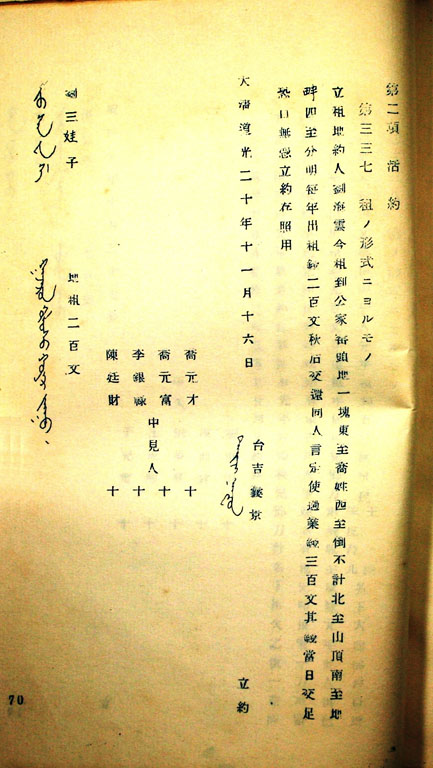 第二項 活約
第三三七 租ノ形式ニヨルモノ
立租地約人劉海雲今租到公家窑頭地一塊東至喬姓西至倒不計北至山頂南至地
畔四至分明每年出租錢二百文秋后交還同人言定使過業錢三百文其錢當日交足
恐口無憑立約存照用
大清道光二十年十一月十六日 立約
台吉
喬元才 十
喬元富 十
中見人
李銀 十
陳廷財 十
劉三娃子 地租二百文
70